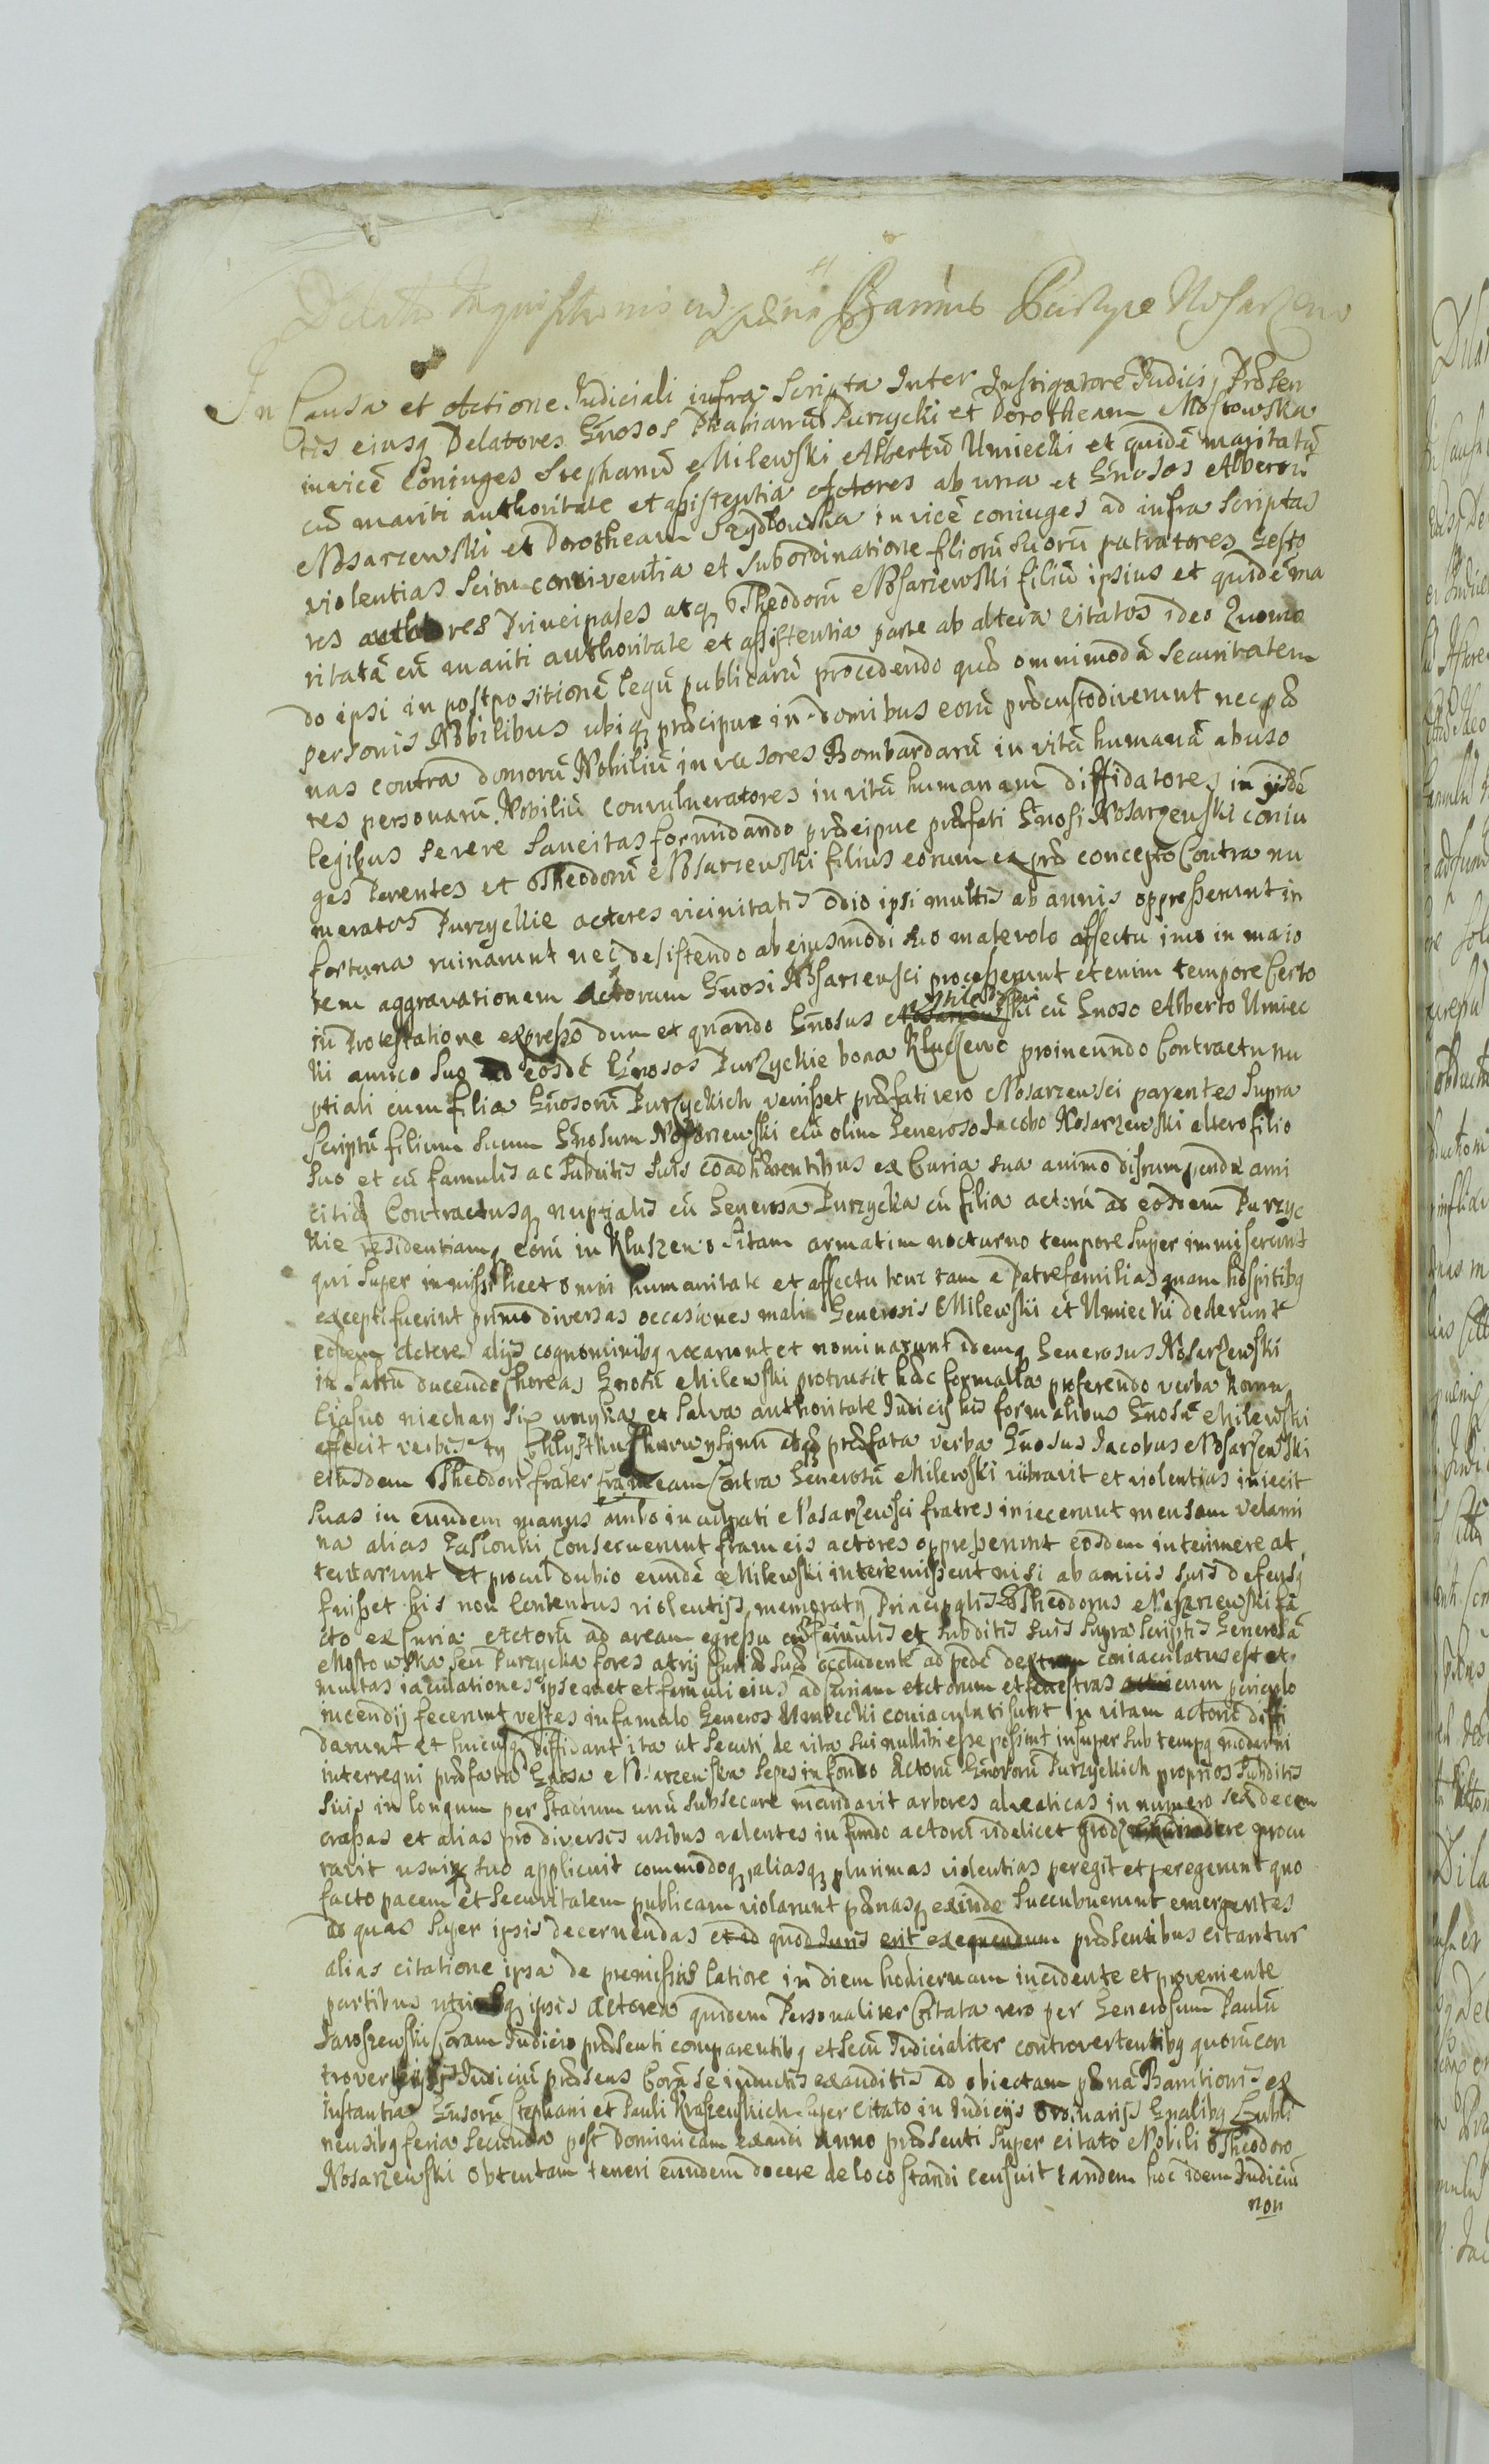 Dilatio Inquisitionis
In Causa et Actione Judiciali infra Scripta Inter Instigatore Judicij Præsen
tis ejusq Delatores Gnosos Purzycki et Dorotheam Mostowska
invicē Coniuges Stephanū Milewski Albertū Umiecki et quidē maritatā
cū mariti authoritate et assistentia Actores ab una et Gnosos Albertū
Nosarzewski et Dorotheam Szydłowska invicē coniuges ad infra Scriptas
violentias Scitu conniventia et Subordinatione filiorū Suorū patratores Gesto
res Principales atq Theodorū Nosarzewski filiū ipsius et quidē ma
ritatā cū mariti authoritate et assistentia parte ab altera citatos ideo Quomo
do ipsi in postpositionē legū publicarū procedendo quæ omnimodā Securitatem
personis Nobilibus ubiq præcipue in domibus eorū præcustodiverunt nec pæ
nas contra domorū Nobiliū invasores Bombardarū in vitā humanā abuso
res personarū Nobiliū convulneratores in vitā humanam diffidatores in ijsdē
legibus Severe Sancitas formidando præcipue præfati Gnosi Nosarzewski coniu
ges Parentes et Theodorū Nosarzewski filius eorum ex præ concepto Contra nu
meratos Purzyckie actores vicinitatis odio ipsi multis ab annis oppresserunt in
fortuna ruinarunt nec desistendo ab ejusmodi suo malevolo affectu imo in maio
rem aggravationem Actorum Gnosi Nosarzewsci processerunt etenim tempore Certo
in Protestatione expresso dum et quando Gnosus Milewski cū Gnoso Alberto Umiec
ki amico Suo ad eosdē Gnosos Purzyckie bona Kluszewo proineundo Contractu nu
ptiali cum filia Gnosorū Purzyckich venisset præfati vero Nosarzewsci parentes Supra
Scriptū filium Suum Gnosum Nosarzewski cū olim Generoso Jacobo Nosarzewski altero filio
Suo et cū famulis ac Subditis Suis coadhærentibus ex Curia Sua animo disrumpendæ ami
citiæ Contractusq nuptialis cū Generosa Purzycka cū filia actorū ad eosdem Purzyc
kie residentiamq eorū in Kluszewo Sitam armatim nocturno tempore Super immiserunt
qui Super immissi licet omni humanitate et affectu tunc tam a Patrefamilias quam hospitibq
excepti fuerint primo diversas occasiones mali Generosis Milewski et Umiecki dederunt
eosdem alijs cognominibq vocarunt et nominarunt idemq Generosus Nosarzewski
in Saltu ducendo choreas Gnosū Milewski protrusit hæc formalia proferendo verba
niechay Się umyka et Salva authoritate Judicij his formalibus Gnosū Milewski
effecit verbis ty præfata verba Gnosus Jacobus Nosarzewski
eiusdem Theodori frater frameam Contra Generosū Milewski vibravit et violentias iniecit
Suas in eundem manus ambo inculpati Nosarzewsci fratres iniecerunt mensam velami
na alias Zasłonki Consecuerunt frameis actores oppresserunt eosdem interimere at
tentarunt et procul dubio eundē Milewski interemissent nisi ab amicis Suis defensq
fuisset his non Contentus violentijs memoratq Principalis Theodorus Nosarzewski fa
cto ex Curia Actorū ad aream egressu cū famulis et Subditis Suis Supra Scriptis Generosā
Mostowska Seu Purzycka fores atrij Curiæ Suæ occludentē ad pedē dextrum coniaculatus est et
multas iaculationes ipsemet et famuli eius ad Curiam Actorum et fenestras cum periculo
incendij fecerunt vestes in famulo Generosi Umiecki coniaculati Sunt in vitam actorū diffi
darunt et hucusq diffidant ita ut Securi de vita Sui nullibi esse possint insuper Sub tempq moderni
interregni præfata Gnosa Nosarzewska Sepes in fondo Actorū Gnororū Purzyckich proprios Subditis
Suis in longum per Stadium unū Subsecare mandavit arbores alveaticas in numero Sexdecem
crassas et alias pro diversis usibus valentes in fundo actorū videlicet procu
ravit usuiq Suo applicuit commodoq aliasq plurimas violentias peregit et peregerunt quo
facto pacem et Securitatem publicam violarunt pænasq exinde Succubuerunt emergentes
ad quas Super ipsis decernendas et id quod Juris erit exequendum præsentibus citantur
alias citatione ipsa de premissis latiore in diem hodiernam incidente et proveniente
partibus utrisq ipsis Actorea quidem Personaliter Citata vero per Generosum Paulū
Jaroszewski Coram Judicio præsenti comparentibq et Secū Judicialiter controvertentibq quorū con
troversijs Judiciū præsens Corā Se inductis exauditis ad obiectam pænā Bannitionis ex
instantia Gnsorū Stephani et Pauli Kraszewskich Super Citato in Judicijs Ordinarijs Gnalibq Lubli
nensibq feria Secunda post Dominicam exaudi Anno præsenti Super citato Nobili Theodoro
Nosarzewski obtentam teneri eundem docere de loco Standi censuit tandem hoc idem Judiciū
non